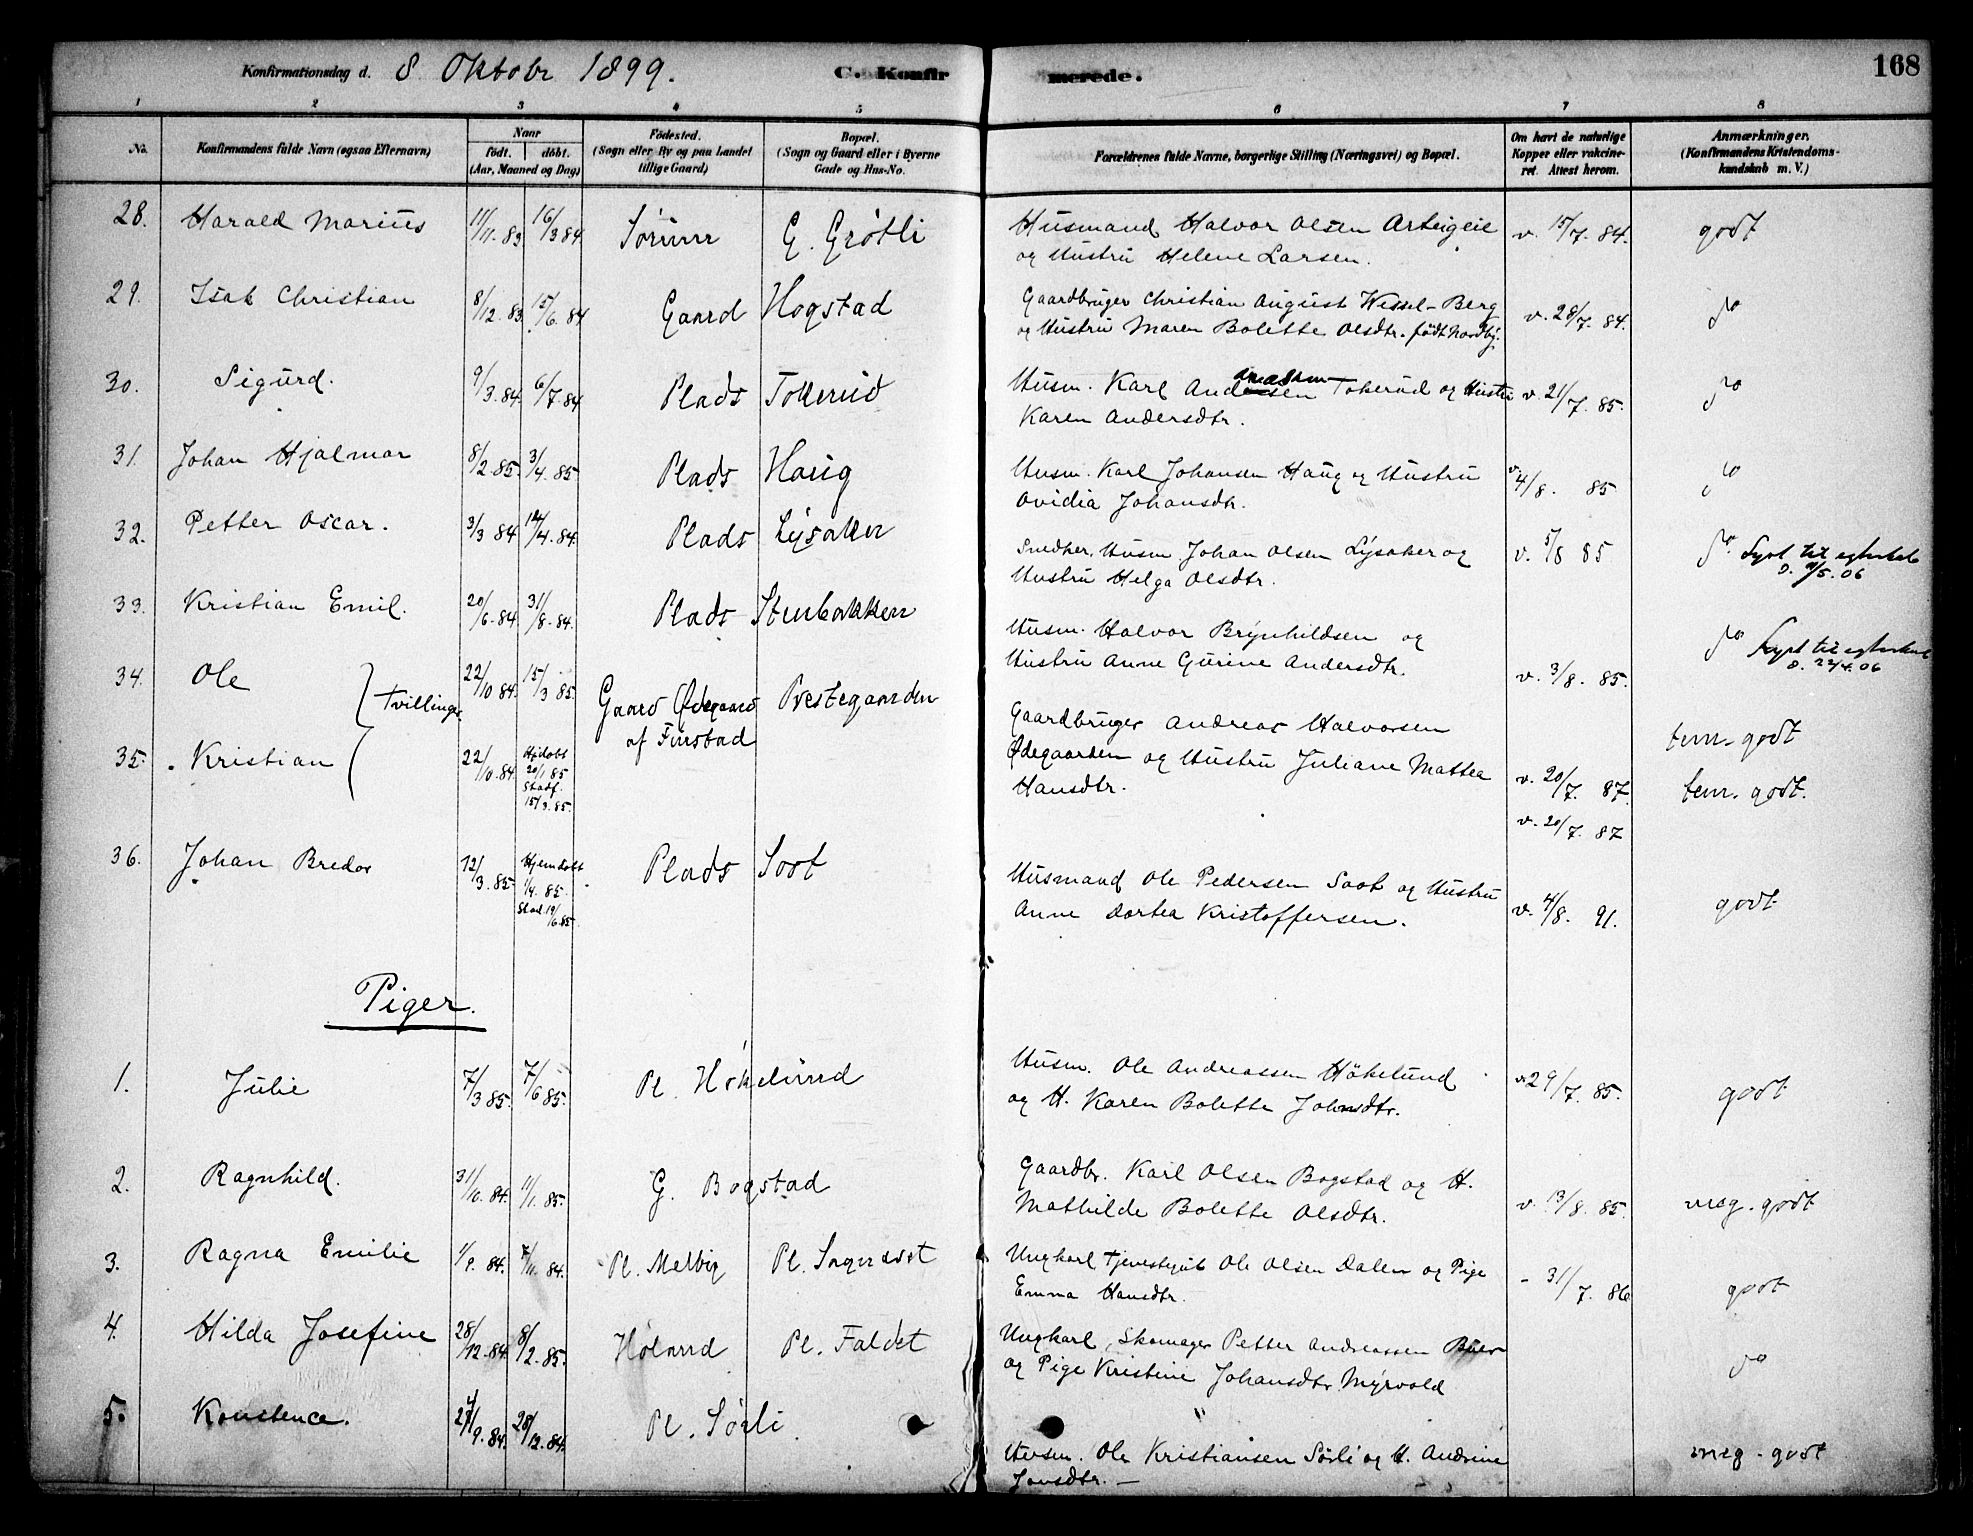 Konfirmationsdag d. 8 Oktobr 1899. C. Konfirmerede. 168
1 2 3 4 5 6 7 8
No. Konfirmandens fulde Navn (ogsaa Efternavn) Naar födt. döbt. (Aar, Maaned og Dag) Födested. (Sogn eller By og paa Landet tillige Gaard) Bopæl. (Sogn og Gaard eller i Byerne Gade og Hus-No. Forældrenes fulde Navne, borgerlige Stilling (Næringsvei) og Bopæl. Om havt de naturlige Kopper eller vakcineret. Attest herom. Anmærkninger. (Konfirmandens Kristendomskundskab m. V.)
28. Harald Marius 11/11. 83 16/3 84 Sörum G. Grötli Husmand Halvor Olsen Arteigeie v. 15/7. 84. godt
og Hustru Helene Larsen.
29. Isak Christian 8/12. 83 15/6. 84 Gaard Hogstad Gaardbruger Christian August Wessel-Berg v. 28/7. 84. do
og Hustru Maren Bolette Olsdtr. födt Nordby.
30. Sigurd. 9/3. 84. 6/7 84 Plads Tokerud Husm. Karl Andersen Tokerud og Hustru v. 21/7. 85. do
Karen Andersdtr.
31. Johan Hjalmar 8/2. 85. 3/4. 85 Plads Haug Husm. Karl Johansen Haug og Hustru v. 4/8. 85 do
Ovidia Johansdtr.
32. Petter Oscar. 3/3 84 14/4. 84. Plads Lysaker Snedker, Husm. Johan Olsen Lysaker og v. 5/8 85 do. Lyst til egteskab
Hustru Helga Olsdtr. D. 11/5. 06
33. Kristian Emil. 20/6. 84 31/8. 84. Plads Stenbakken Husm. Halvor Brynhildsen og do Lyst til egteskab
Hustru Anne Gurine Andersdtr. v. 3/8. 85. D. 22/4. 06
34. Ole Tvillinger 22/10 84. 15/3 85. Gaard Ødegaard af Finstad Prestegaarden Gaardbruger Andreas Halvorsen tem. godt
35. Kristian 22/10. 84. Hjdöbt 20/1 85 Stadf. 15/3. 85. Ødegaarden og Hustru Juliane Mattea v. 20/7. 87. tem. godt.
Hansdtr. v. 20/7. 87
36. Johan Bredor 12/3. 85. Hjemdöbt 1/4. 85. Stad. 14/6. 85. Plads Soot Husmand Ole Pedersen Soot og Hustru v. 4/8. 91. godt
Anne Dortea Kristoffersen.
Piger.
1. Julie 7/3 85. 7/6 85. Pl. Hökelund Husm. Ole Andreassen Hökelund v 29/7. 85. godt
og H. Karen Bolette Johnsdtr.
2. Ragnhild. 31/10. 84. 11/1. 85. G. Bogstad Gaardbr. Karl Olsen Bogstad og H. v. 13/8. 85. meg. godt
Mathilde Bolette Olsdtr.
3. Ragna Emilie 1/9. 84. 7/11. 84. Pl. Melbig Pl. Ungkarl Tjenestegut Ole Olsen Dalen og Pige - 31/7. 86 godt
Emma Hansdtr.
4. Hilda Josefine 28/12. 84. 8/2. 85. Höland Pl. Faldet Ungkarl, Skomager Petter Andreassen Buer do
og Pige Kristine Johansdtr Myrvold
5. Konstence. 27/9. 84. 28/12. 84. Pl. Sörli Husm. Ole Kristiansen Sörli og H. Andrine meg. godt
Jonsdtr. —